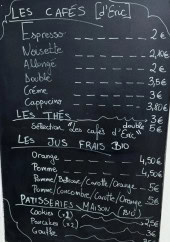 LES CAFÉS [d'Eric]
Espresso 2€
Noisette 2,10€
Allongé 2€
Double 3,5€
Crème 3€
Cappucino 3,80€
LES THÉS 3€
Sélection "Les cafés d'Eric" double 5€
LES JUS FRAIS BIO
Orange 4,50€
Pomme 4,50€
Pomme/Betterave/Carotte/Orange 5€
Pomme/Concombre/Carotte/Orange 5€
PATISSERIES MAISON (BIO)
Cookies (x2) 2,5€
Pancakes (x2) 3€
Gauffre 3€